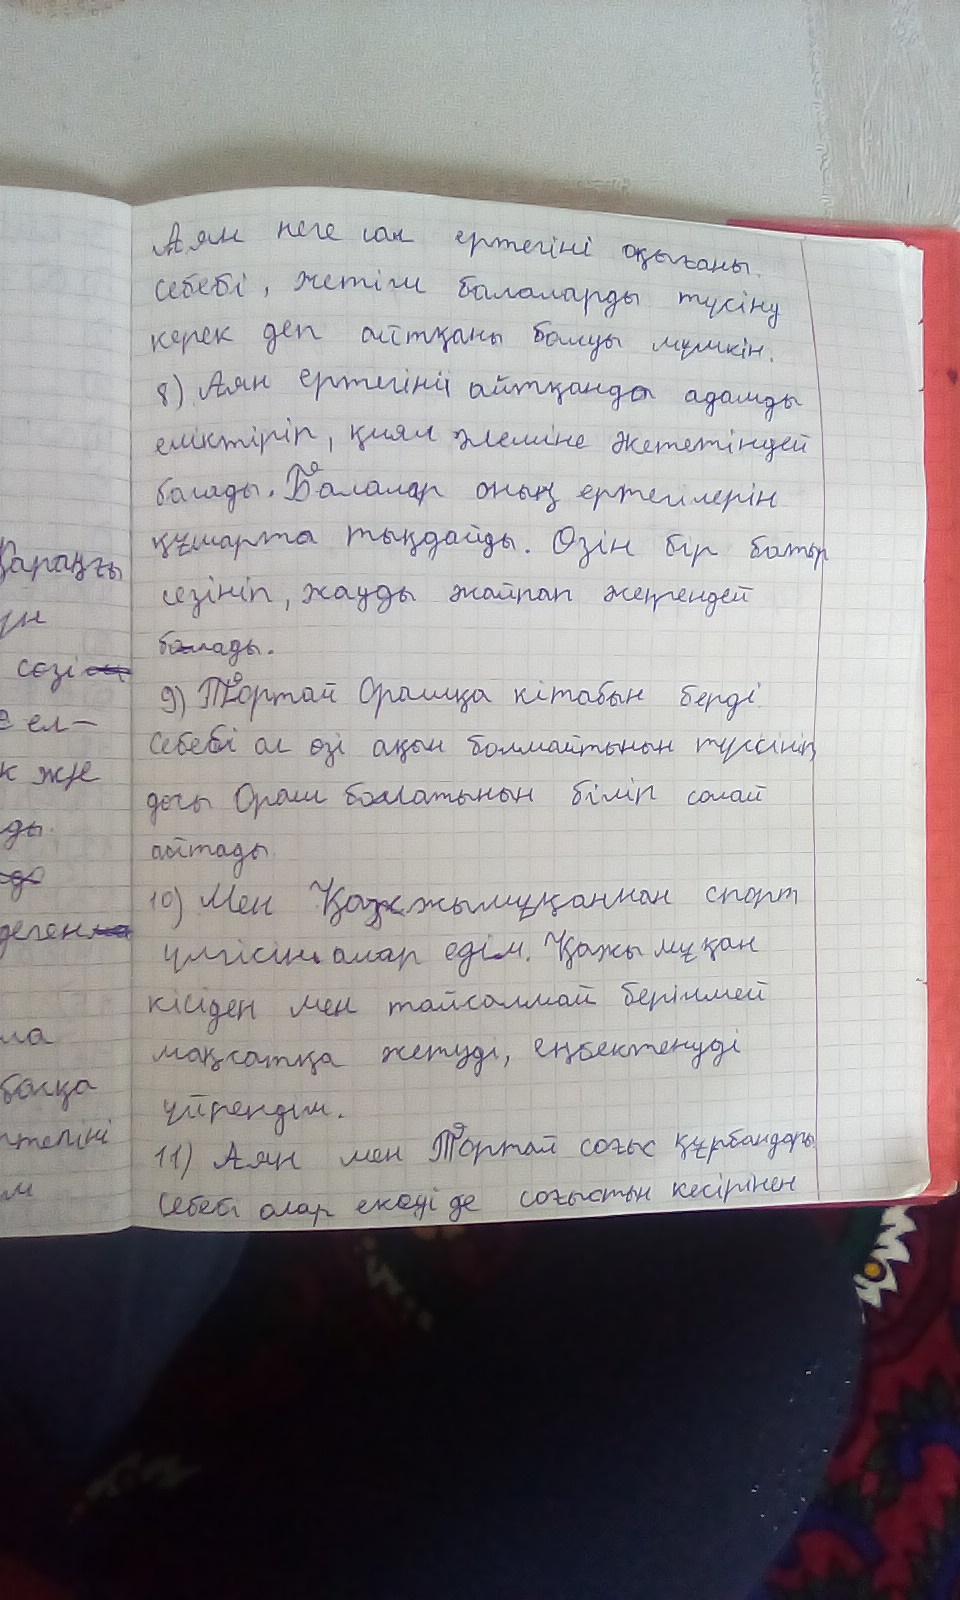 Аян неге сол ертегіні оқығаны.
себебі, жетім балаларды түсіну
керек деп айтқаны болуы мүмкін.
8) Аян ертегіні айтқанда адамды
еліктіріп, қиял әлеміне жететіндей
болады. Балалар оның ертегілерін
құмарта тыңдайды. Өзін бір батыр
сезініп, жауды жайпап жеңгендей
болады.
9) Тортай Орашқа кітабын берді
себебі ол өзі ақын болмайтынын түсініп,
дағы Ораш болатынын біліп солай
айтады
10) Мен Қажжымұқаннан спорт
үлгісін алар едім. Қажы мұқан
кісіден мен тайсалмай берілмей
мақсатқа жетуді, еңбектенуді
үйрендім.
11) Аян мен Тортай соғыс құрбандары.
себебі олар екеуі де соғыстың кесірінен
Қараңғы
үн
сөзі
е ел-
к же
ды.
де
деген
ла
басқа
ртегіні
м